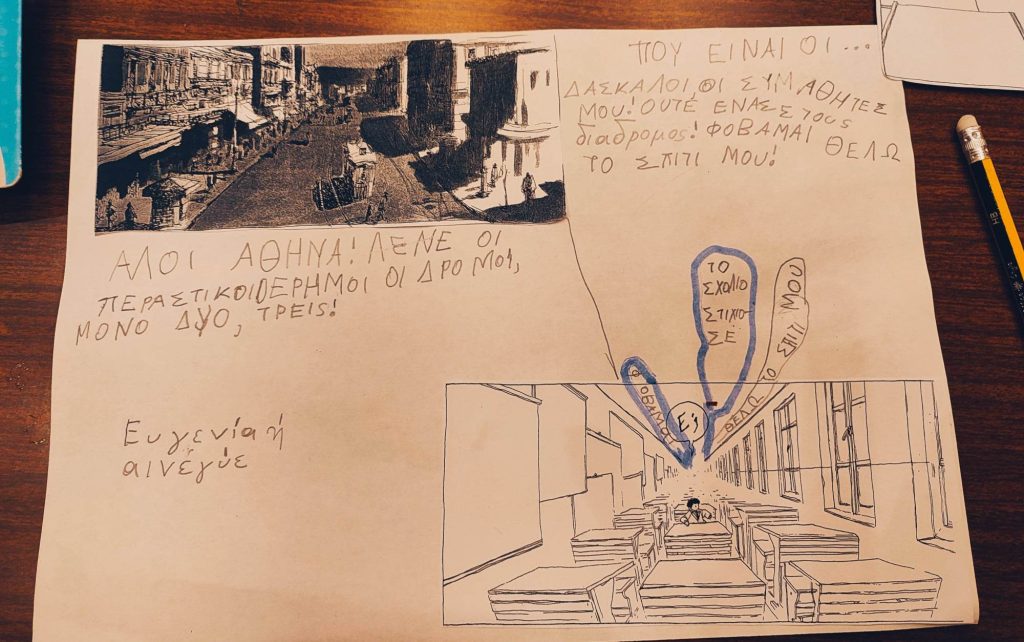 ΑΛΟΙ ΑΘΗΝΑ! ΛΕΝΕ ΟΙ
ΠΕΡΑΣΤΙΚΟΙ ΕΡΗΜΟΙ ΟΙ ΔΡΟΜΟΙ,
ΜΟΝΟ ΔΥΟ, ΤΡΕΙΣ!
Ευγενία ή
αινέγυε
ΠΟΥ ΕΙΝΑΙ ΟΙ...
ΔΑΣΚΑΛΟΙ, ΟΙ ΣΥΜΑΘΗΤΕΣ
ΜΟΥ! ΟΥΤΕ ΕΝΑΣ ΣΤΟΥΣ
διαδρομος! ΦΟΒΑΜΑΙ ΘΕΛΩ
ΤΟ ΣΠΙΤΙ ΜΟΥ!
ΦΟΒΑΜΑΙ
ΤΟ
ΣΧΟΛΙΟ
ΣΤΙΧΙΟ-
ΣΕ
ΘΕΛΩ ΤΟ ΣΠΙΤΙ ΜΟΥ